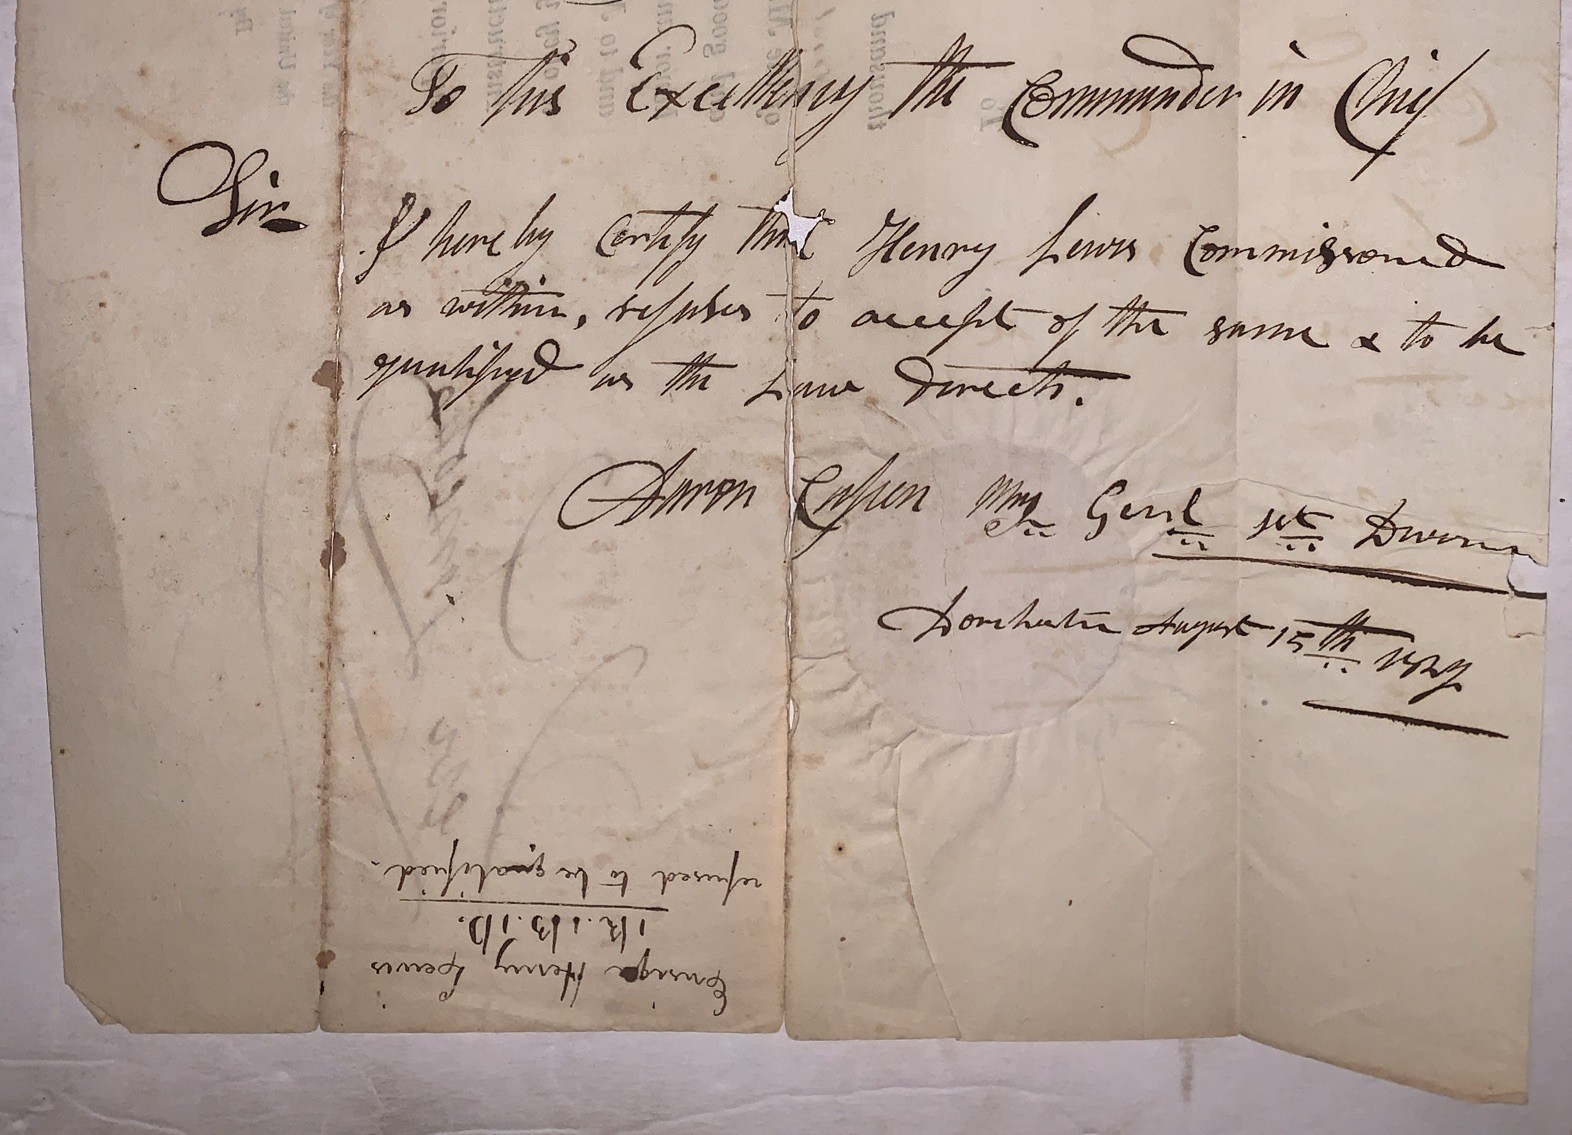 To his Excellency the Commander in Chief
Sir
I hereby Certify that Henry Lewis Commissioned
as within, refuses to accept of the same & to be
qualified as the Law directs.
Aaron Capen Maj Genl 1st Division
Dorchester August 15th 1829
Ensign Henry Lewis
1R. 1B. 1D.
refused to be qualified.